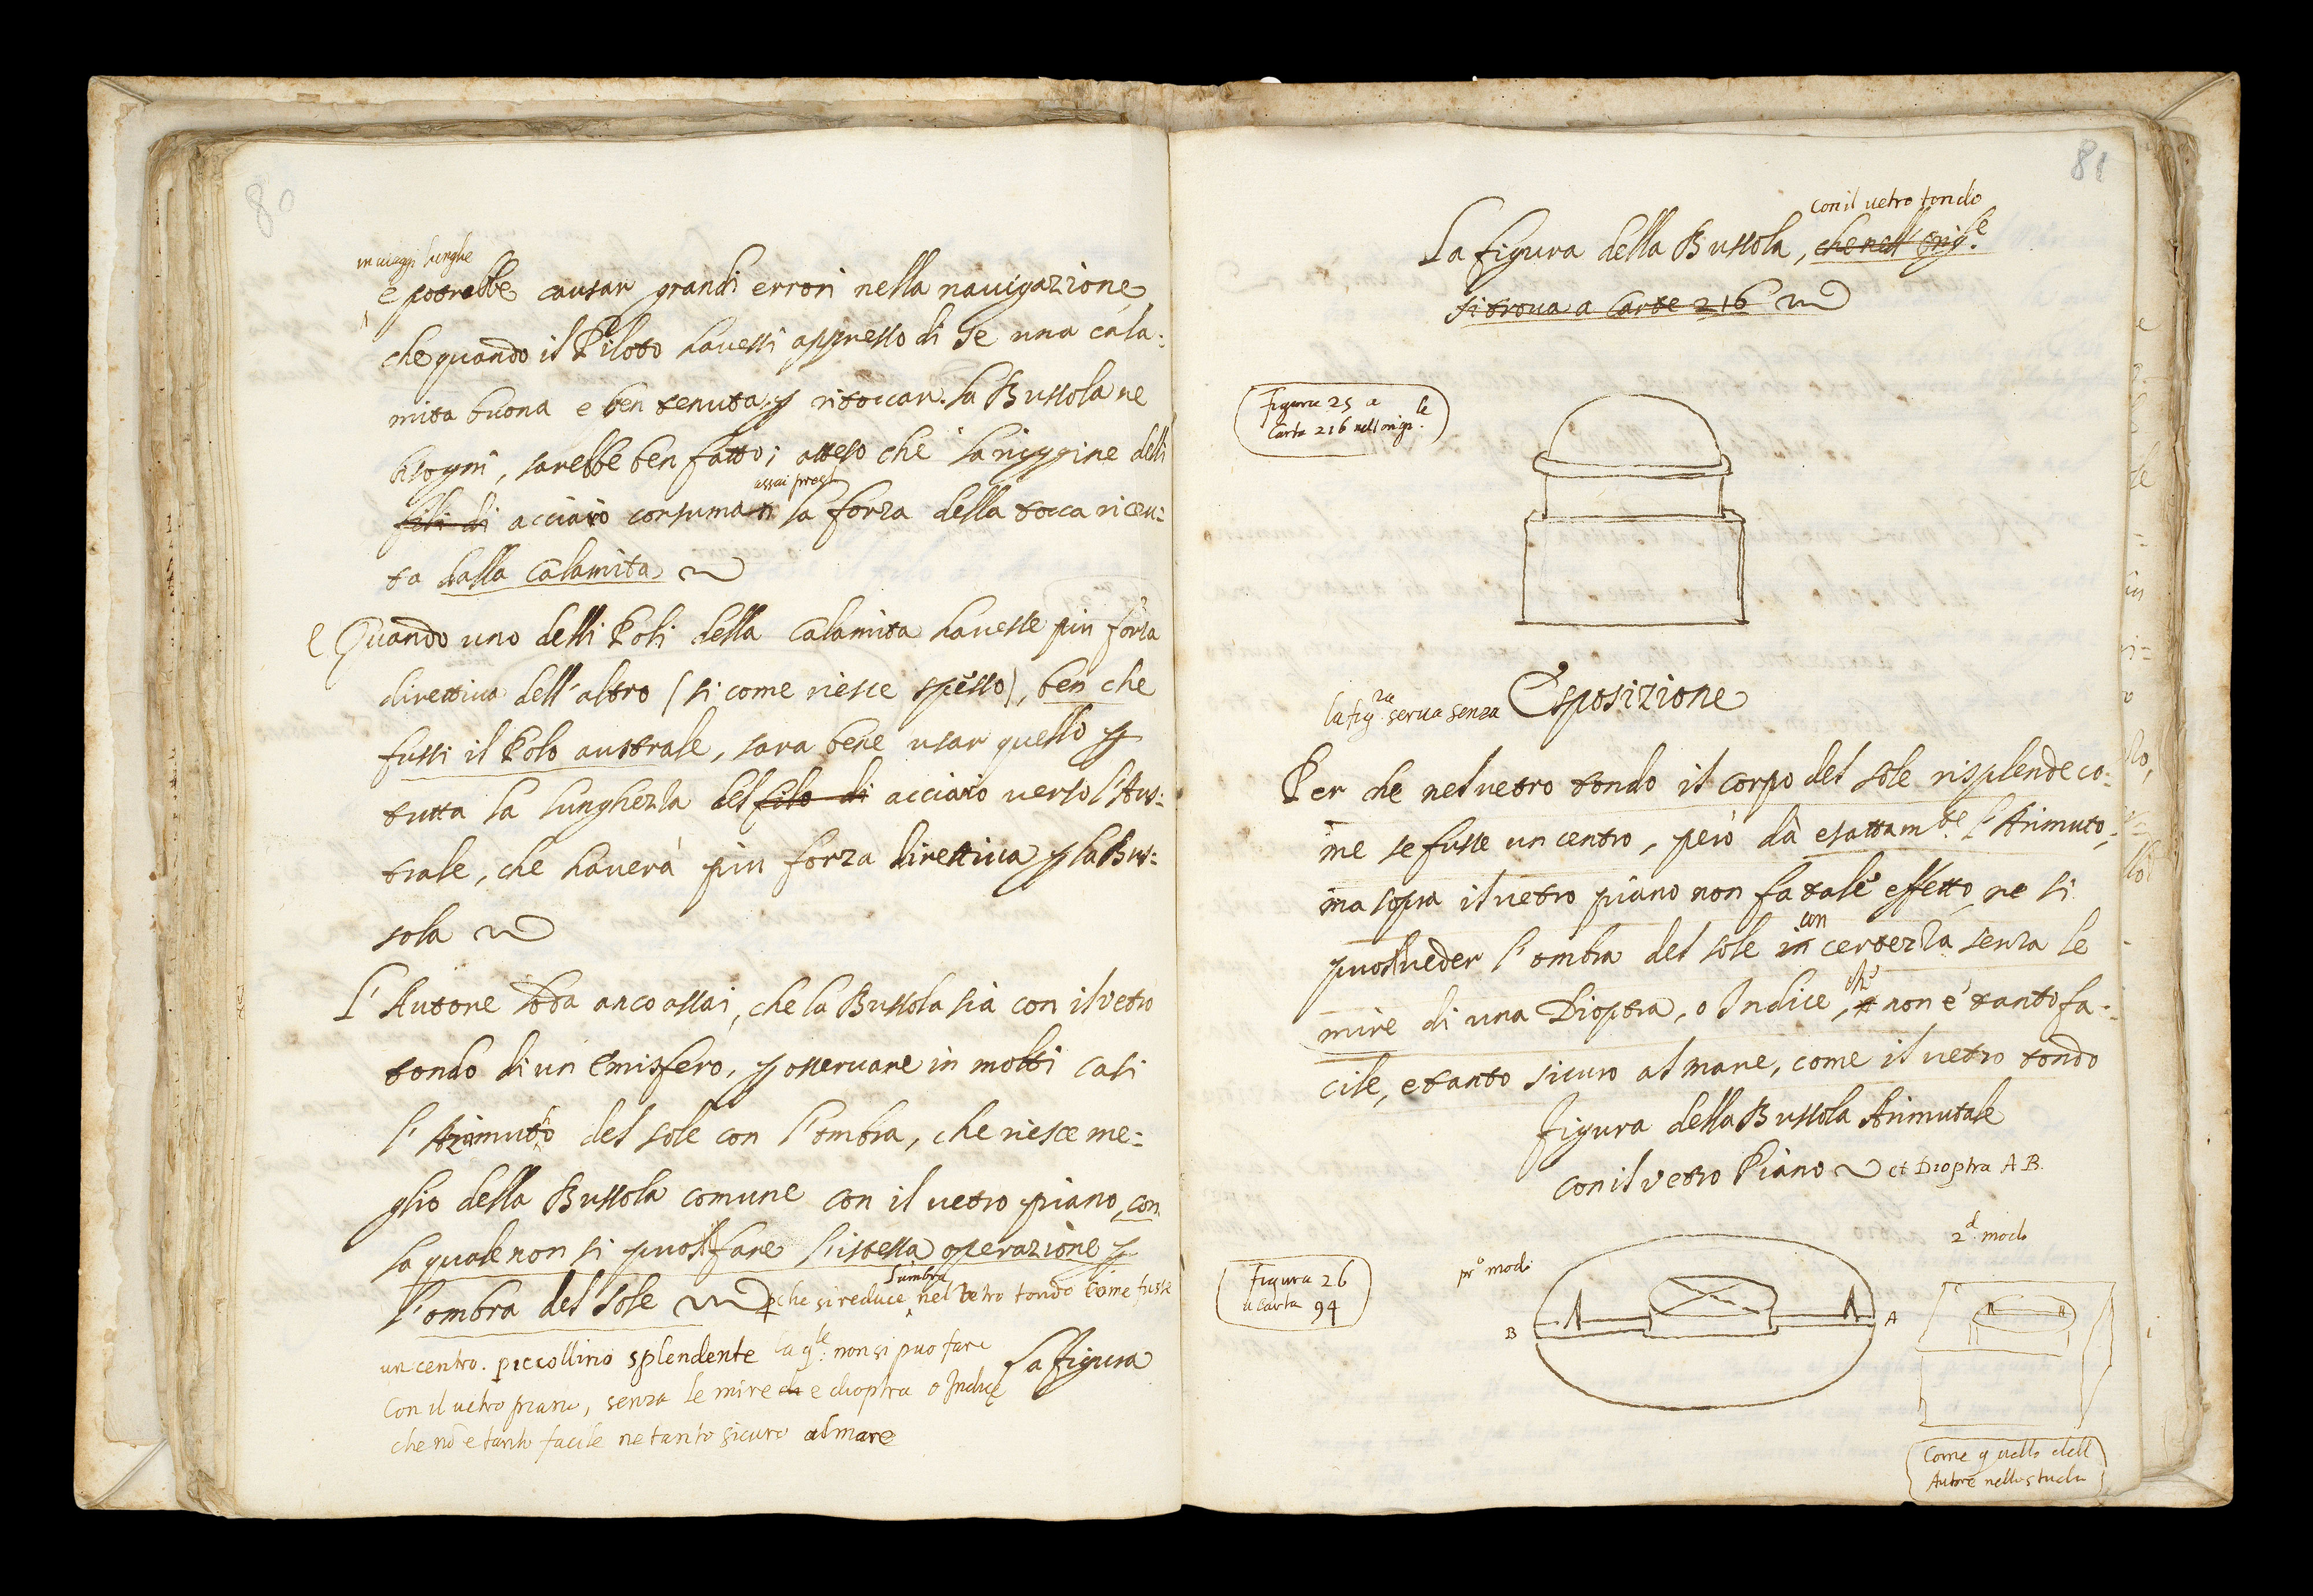 80
in uiaggi lunghe
e potrebbe causar grandi errori nella nauigazione,
che quando il Piloto hauessi appresso di se una cala:
mita buona e ben tenuta, p ritoccar la Bussola ne
bisogni, sarebbe ben fatto; atteso che la ruggine delli
assai presto
fili di acciaio consuma la forza della tocca riceu:
ta dalla Calamita
e Quando uno delli Poli della Calamita hauesse piu forza
direttiua dell'altro (si come riesce spesso), ben che
fussi il Polo australe, sara bene usar quello p
tutta la lunghezza del filo di acciaio verso l'Aus:
trale, che hauerà piu forza direttiua p la Bus:
sola
L'Autore loda anco assai, che la Bussola sia con il vetro
tondo di un Emisfero, p osseruare in molti casi
l'Azimuto del sole con l'ombra, che riesce me:
glio della Bussola comune con il uetro piano, con
la quale non si può fare l'istessa operazione p
l'ombra
l'ombra del sole pche si reduce nel vetro tondo come fusse
un centro piccollino splendente la qle: non si puo fare
Con il uetro piano, senza le mire di e dioptra o Indice
che nõ e tanto facile ne tanto sicuro al mare
La Figura
81
con il uetro tondo
La figura della Bussola, che nell' Origle
si troua a Carte 216
figura 25 a
Carta 216 nell origle.
la figra: serua senza Esposizione
Per che nel uetro tondo il corpo del sole risplende co:
me se fusse un centro, però dà esattamte l'Azimuto;
ma sopra il uetro piano non fa tale effetto, ne si
con
può ueder l'ombra del sole in certezza senza le
che
mire di una Dioptra, o Indice, non è tanto fa:
cile, e tanto sicuro al mare, come il uetro tondo
figura della Bussola Azimutale
con il vetro Piano et Dioptra A B.
2d. modo
pro modo
Figura 26
a Carta 94
B
A
Come quello dell
Autore nello studio